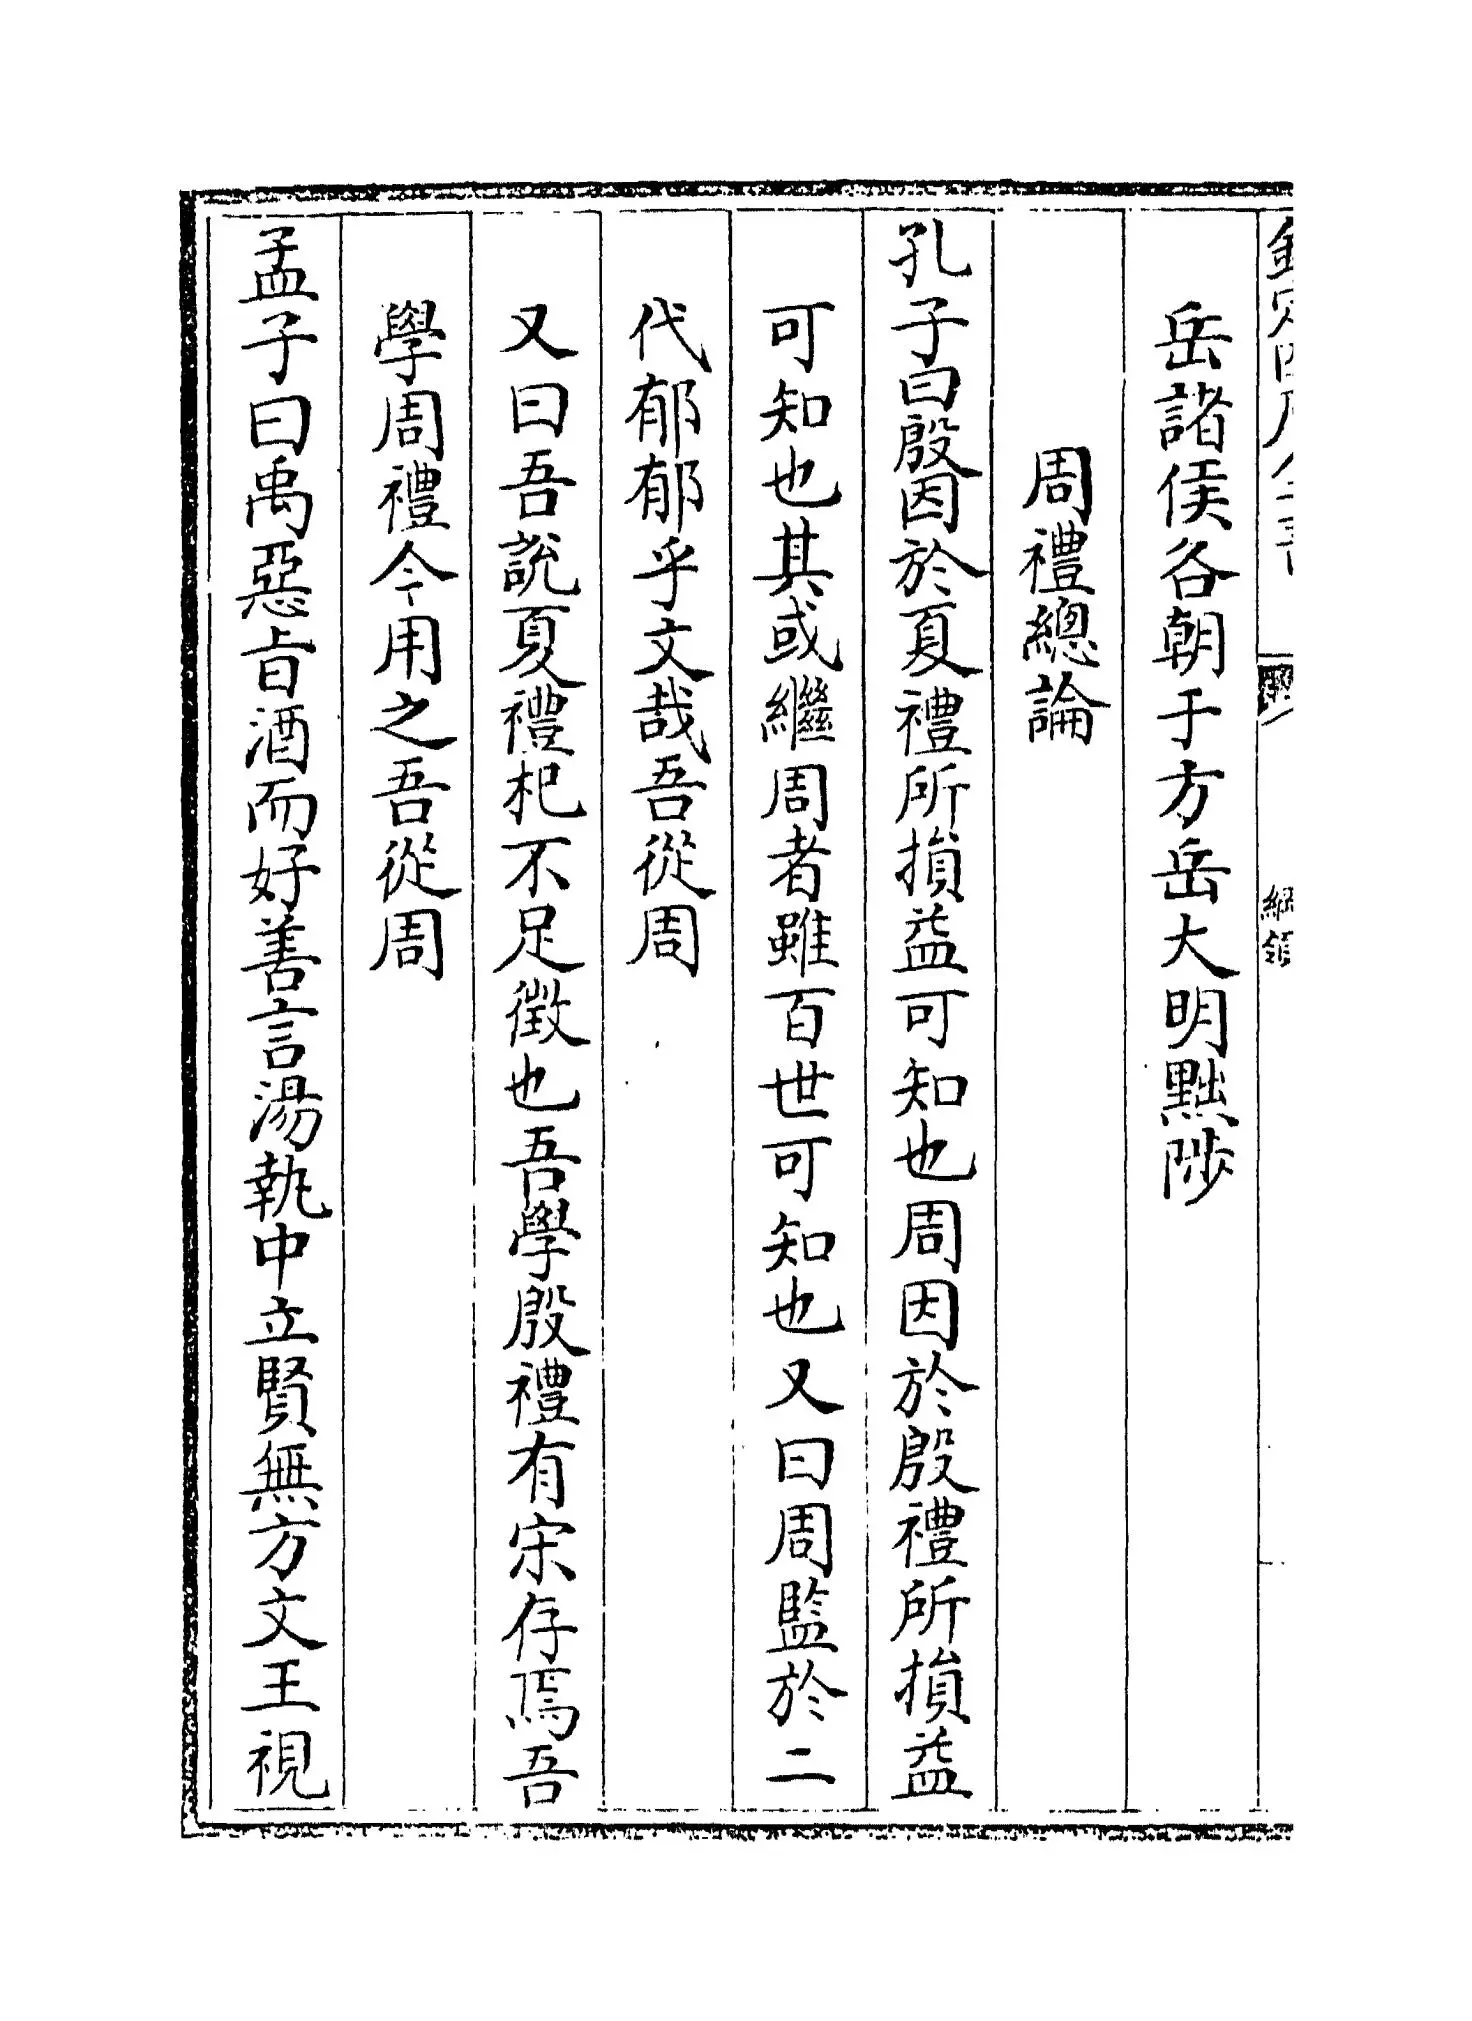 欽定四庫全書
綱領
岳諸侯各朝于方岳大明黜陟
周禮總論
孔子曰殷因於夏禮所損益可知也周因於殷禮所損益
可知也其或繼周者雖百世可知也又曰周監於二
代郁郁乎文哉吾從周
又曰吾說夏禮杞不足徵也吾學殷禮有宋存焉吾
學周禮今用之吾從周
孟子曰禹惡旨酒而好善言湯執中立賢無方文王視